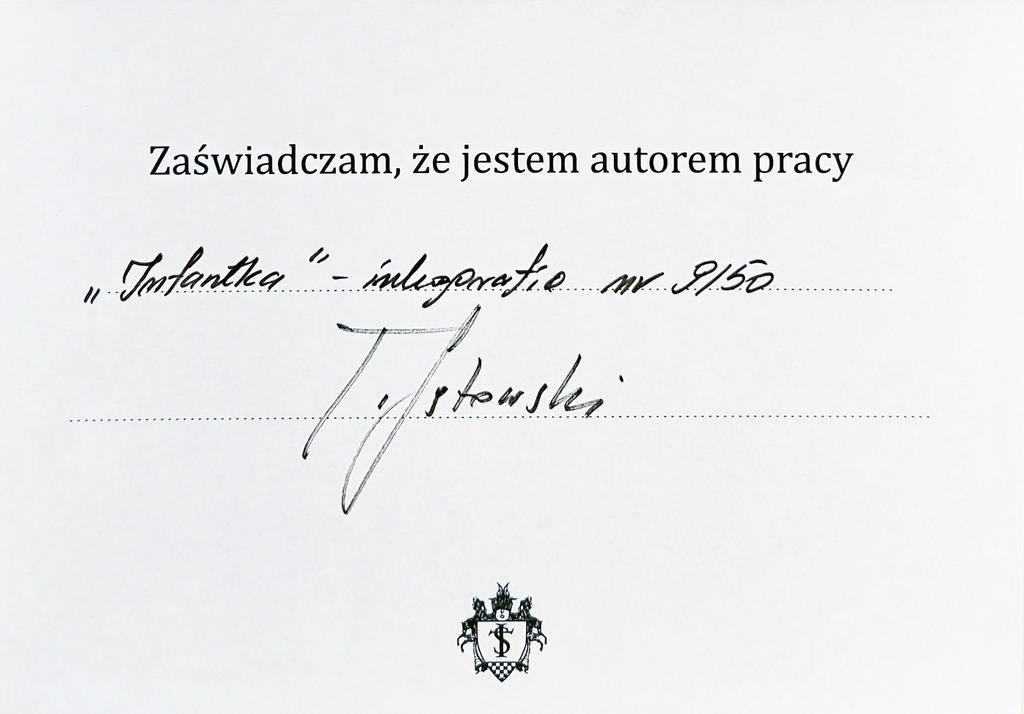 Zaświadczam, że jestem autorem pracy
„Infantka" - inkografia nr 9/50
T. Sętowski